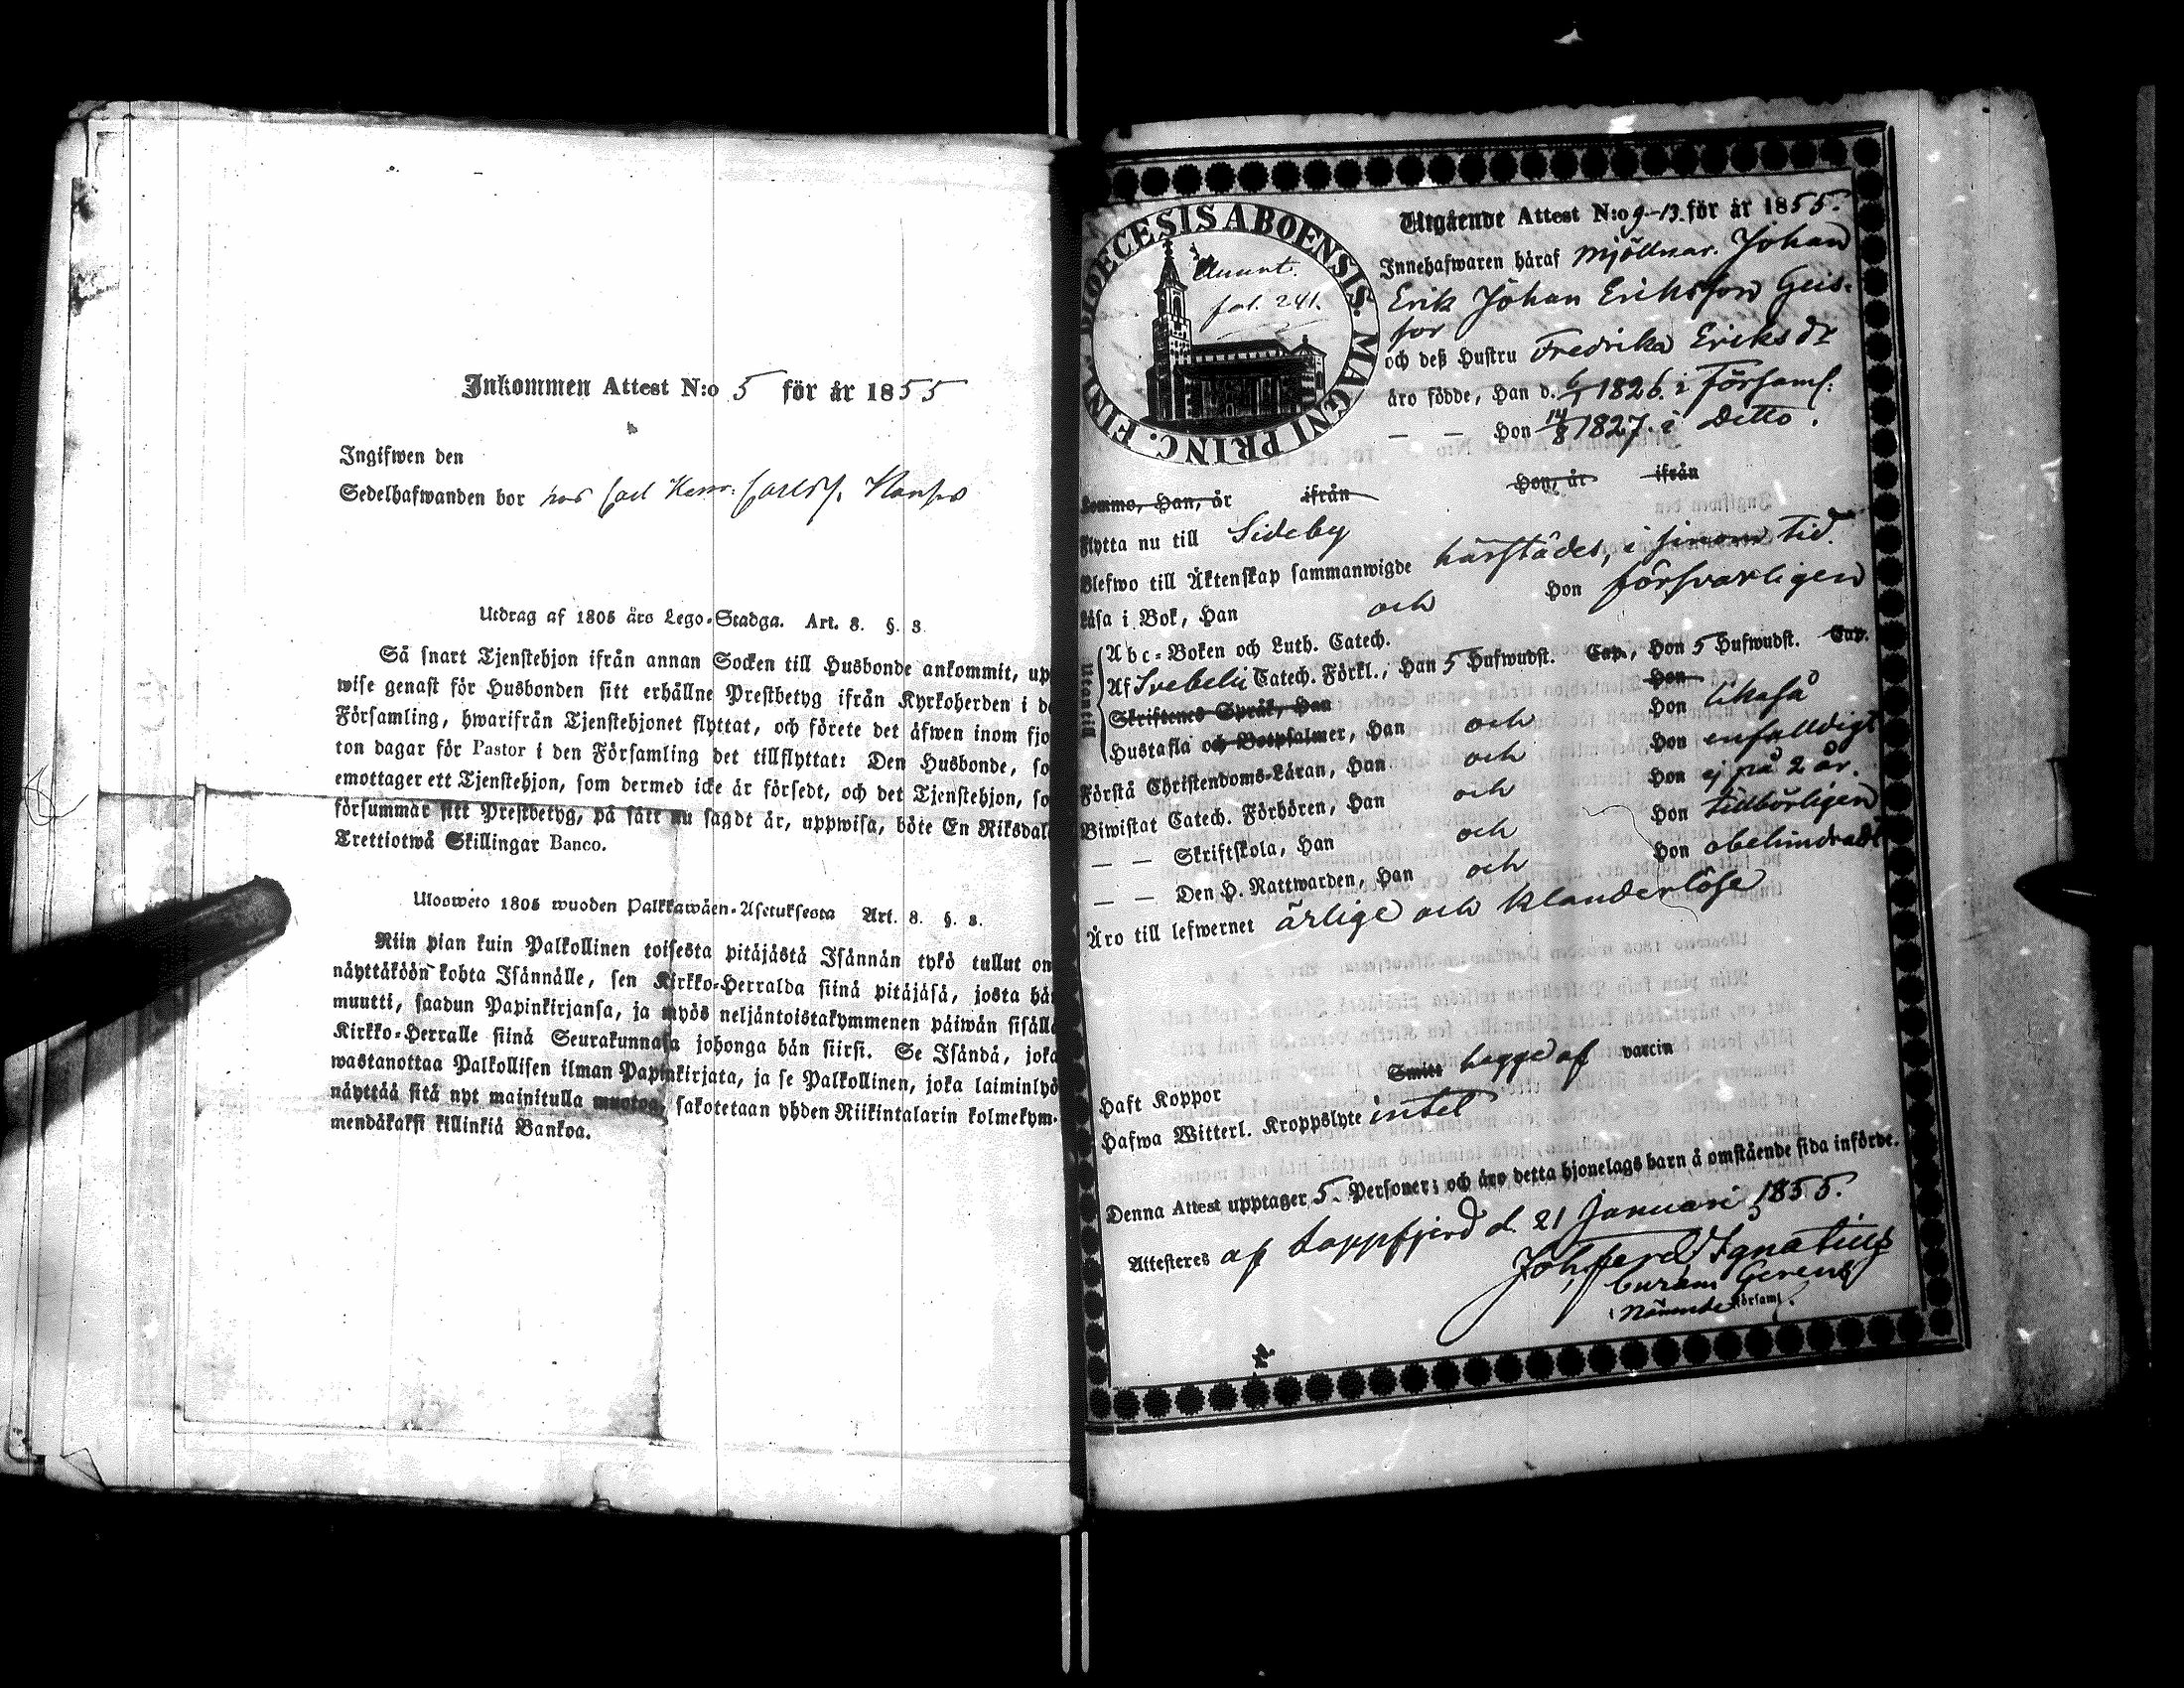 Inkommen Attest N:o 5 för år 1855
Ingifwen den
Sedelhafwanden bor hos
Utdrag af 1805 års Lego-Stadga. Art. 8. §. 3.
Så snart Tjenstehjon ifrån annan Socken till Husbonde ankommit, up
wise genast för Husbonden sitt erhållne Prestbetyg ifrån Kyrkoherden i d
Församling, hwarifrån Tjenstehjonet flyttat, och förete det äfwen inom fjo
ton dagar för Pastor i den Församling det tillflyttat: Den Husbonde, so
emottager ett Tjenstehjon, som dermed icke är försedt, och det Tjenstehjon, so
försummar sitt Prestbetyg, på sätt nu sagdt är, uppwisa, böte En Riksdal
Trettiotwå Skillingar Banco.
Ulosweto 1805 wuoden Palkkawäen-Asetuksesta Art. 8. §. 3.
Niin pian kuin Palkollinen toisesta pitäjästä Isännän tykö tullut on
näyttäköön kohta Isännälle, sen Kirkko-Herralda siinä pitäjäsä, josta hän
muutti, saadun Papinkirjansa, ja myös neljäntoistakymmenen päiwän sisällä
Kirkko-Herralle siinä Seurakunnasa johonga hän siirsi. Se Isändä, joka
wastanottaa Palkollisen ilman Papinkirjata, ja se Palkollinen, joka laiminlyö
näyttää sitä nyt mainitulla muotoa, sakotetaan yhden Riikintalarin kolmekym-
mendäkaksi killinkiä Bankoa.
DIOECESIS ABOENSIS. MAGNI PRINC. FINL.
Annot.
fol. 241.
Utgående Attest N:o 9-13. för år 1855.
Innehafwaren häraf Mjölnar. Johan
Erik Johan Eriksson Geis-
for
och deß Hustru Fredrika Eriksdr
äro födde, Han d. 6/1 1826. i Församl:
— — Hon 14/8 1827. i Ditto.
Kommo, Han, år ifrån Hon, år ifrån
Flytta nu till Sideby
Blefwo till Äktenskap sammanwigde härstädes, i sinom tid.
Läsa i Bok, Han och Hon försvarligen
Utantill
Abc-Boken och Luth. Catech.
Af Svebelii Catech. Förkl., Han 5 Hufwudst. Cap., Hon 5 Hufwudst. Cap.
Skriftenes Språk, Han Hon
Hustafla och Botpsalmer, Han och Hon likaså
Förstå Christendoms-Läran, Han och Hon enfalldigt
Biwistat Catech. Förhören, Han och Hon ej på 2 år.
— — Skriftskola, Han och Hon tillbörligen
— — Den H. Nattwarden, Han och Hon obehindradt
Äro till lefwernet ärlige och klanderlöse
Haft Koppor Smitt bägge af vaccin
Hafwa Witterl. Kroppslyte intet
Denna Attest upptager 5. Personer; och äro detta hjonelags barn å omstående sida införde.
Attesteres af Lappfjerd d. 21 Januari 1855.
Joh. Ferd. Ignatius
Curam Gerens
i Nämnde Församl.